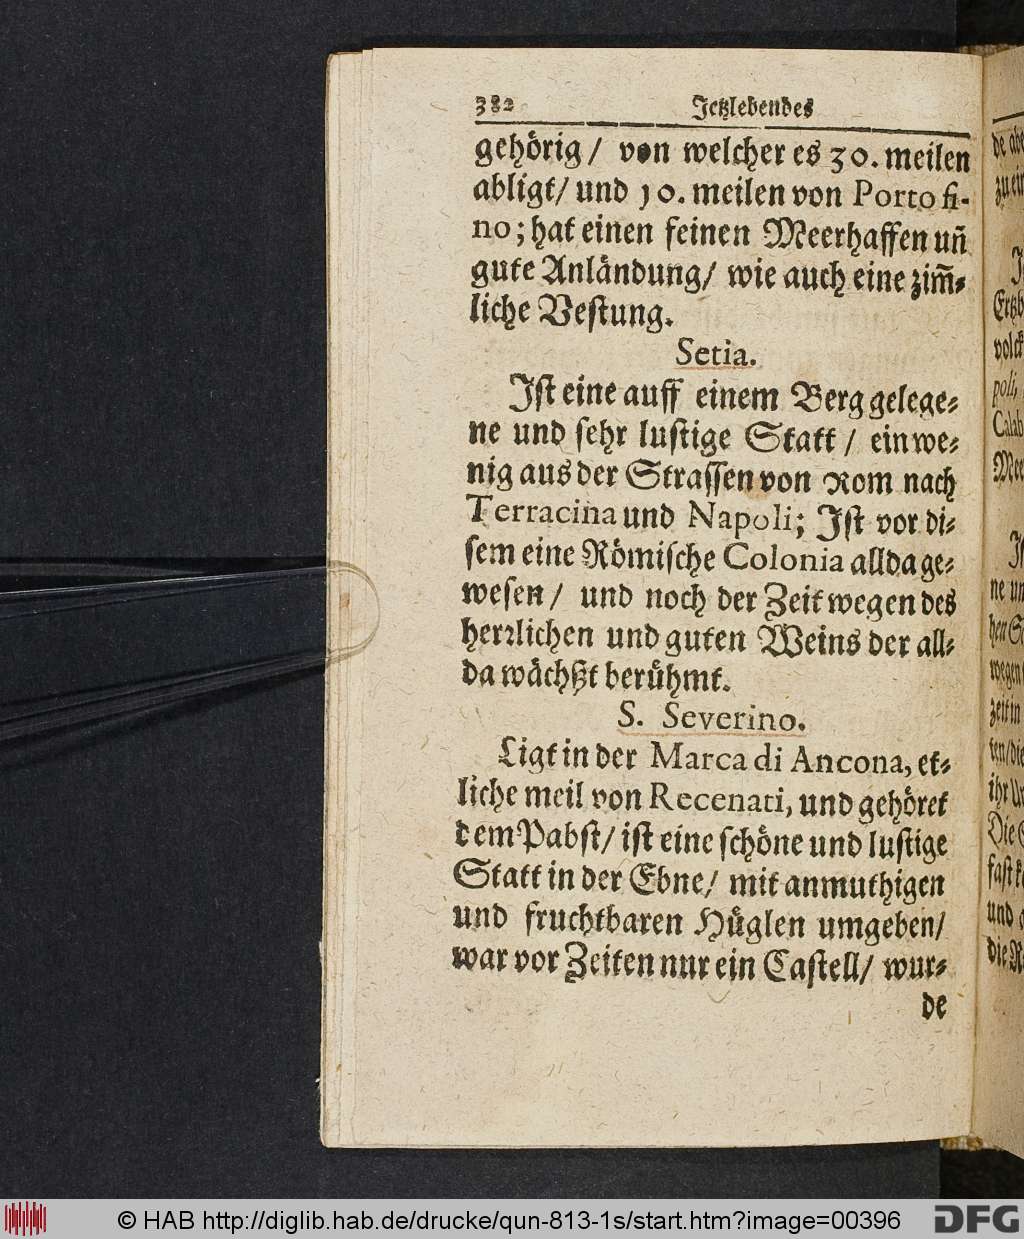 382 Jetzlebendes
gehörig / von welcher es 30. meilen
abligt / und 10. meilen von Porto fi-
no; hat einen feinen Meerhaffen uñ
gute Anländung / wie auch eine zim̃-
liche Vestung.
Setia.
Ist eine auff einem Berg gelege-
ne und sehr lustige Statt / ein we-
nig aus der Strassen von Rom nach
Terracina und Napoli; Ist vor di-
sem eine Römische Colonia allda ge-
wesen / und noch der Zeit wegen des
herrlichen und guten Weins der all-
da wächßt berühmt.
S. Severino.
Ligt in der Marca di Ancona, et-
liche meil von Recenati, und gehöret
dem Pabst / ist eine schöne und lustige
Statt in der Ebne / mit anmuthigen
und fruchtbaren Hüglen umgeben /
war vor Zeiten nur ein Castell / wur-
de
© HAB http://diglib.hab.de/drucke/qun-813-1s/start.htm?image=00396 DFG